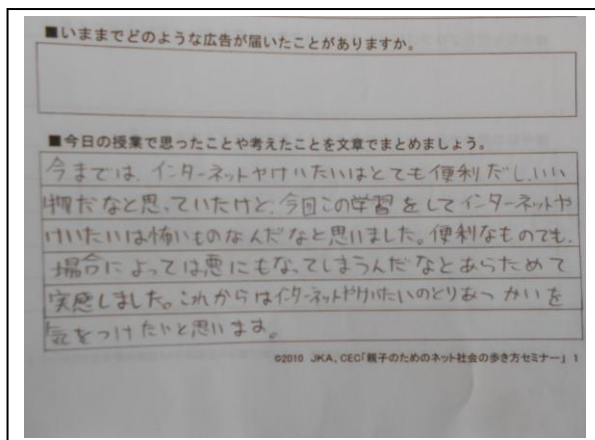 ■いままでどのような広告が届いたことがありますか。
■今日の授業で思ったことや考えたことを文章でまとめましょう。
今までは、インターネットやけいたいはとても便利だし、いい
物だなと思っていたけど、今回この学習をしてインターネットや
けいたいは怖いものなんだなと思いました。便利なものでも、
場合によっては悪にもなってしまうんだなとあらためて
実感しました。これからはインターネットやけいたいのとりあつかいを
気をつけたいと思います。
©2010 JKA, CEC「親子のためのネット社会の歩き方セミナー」 1